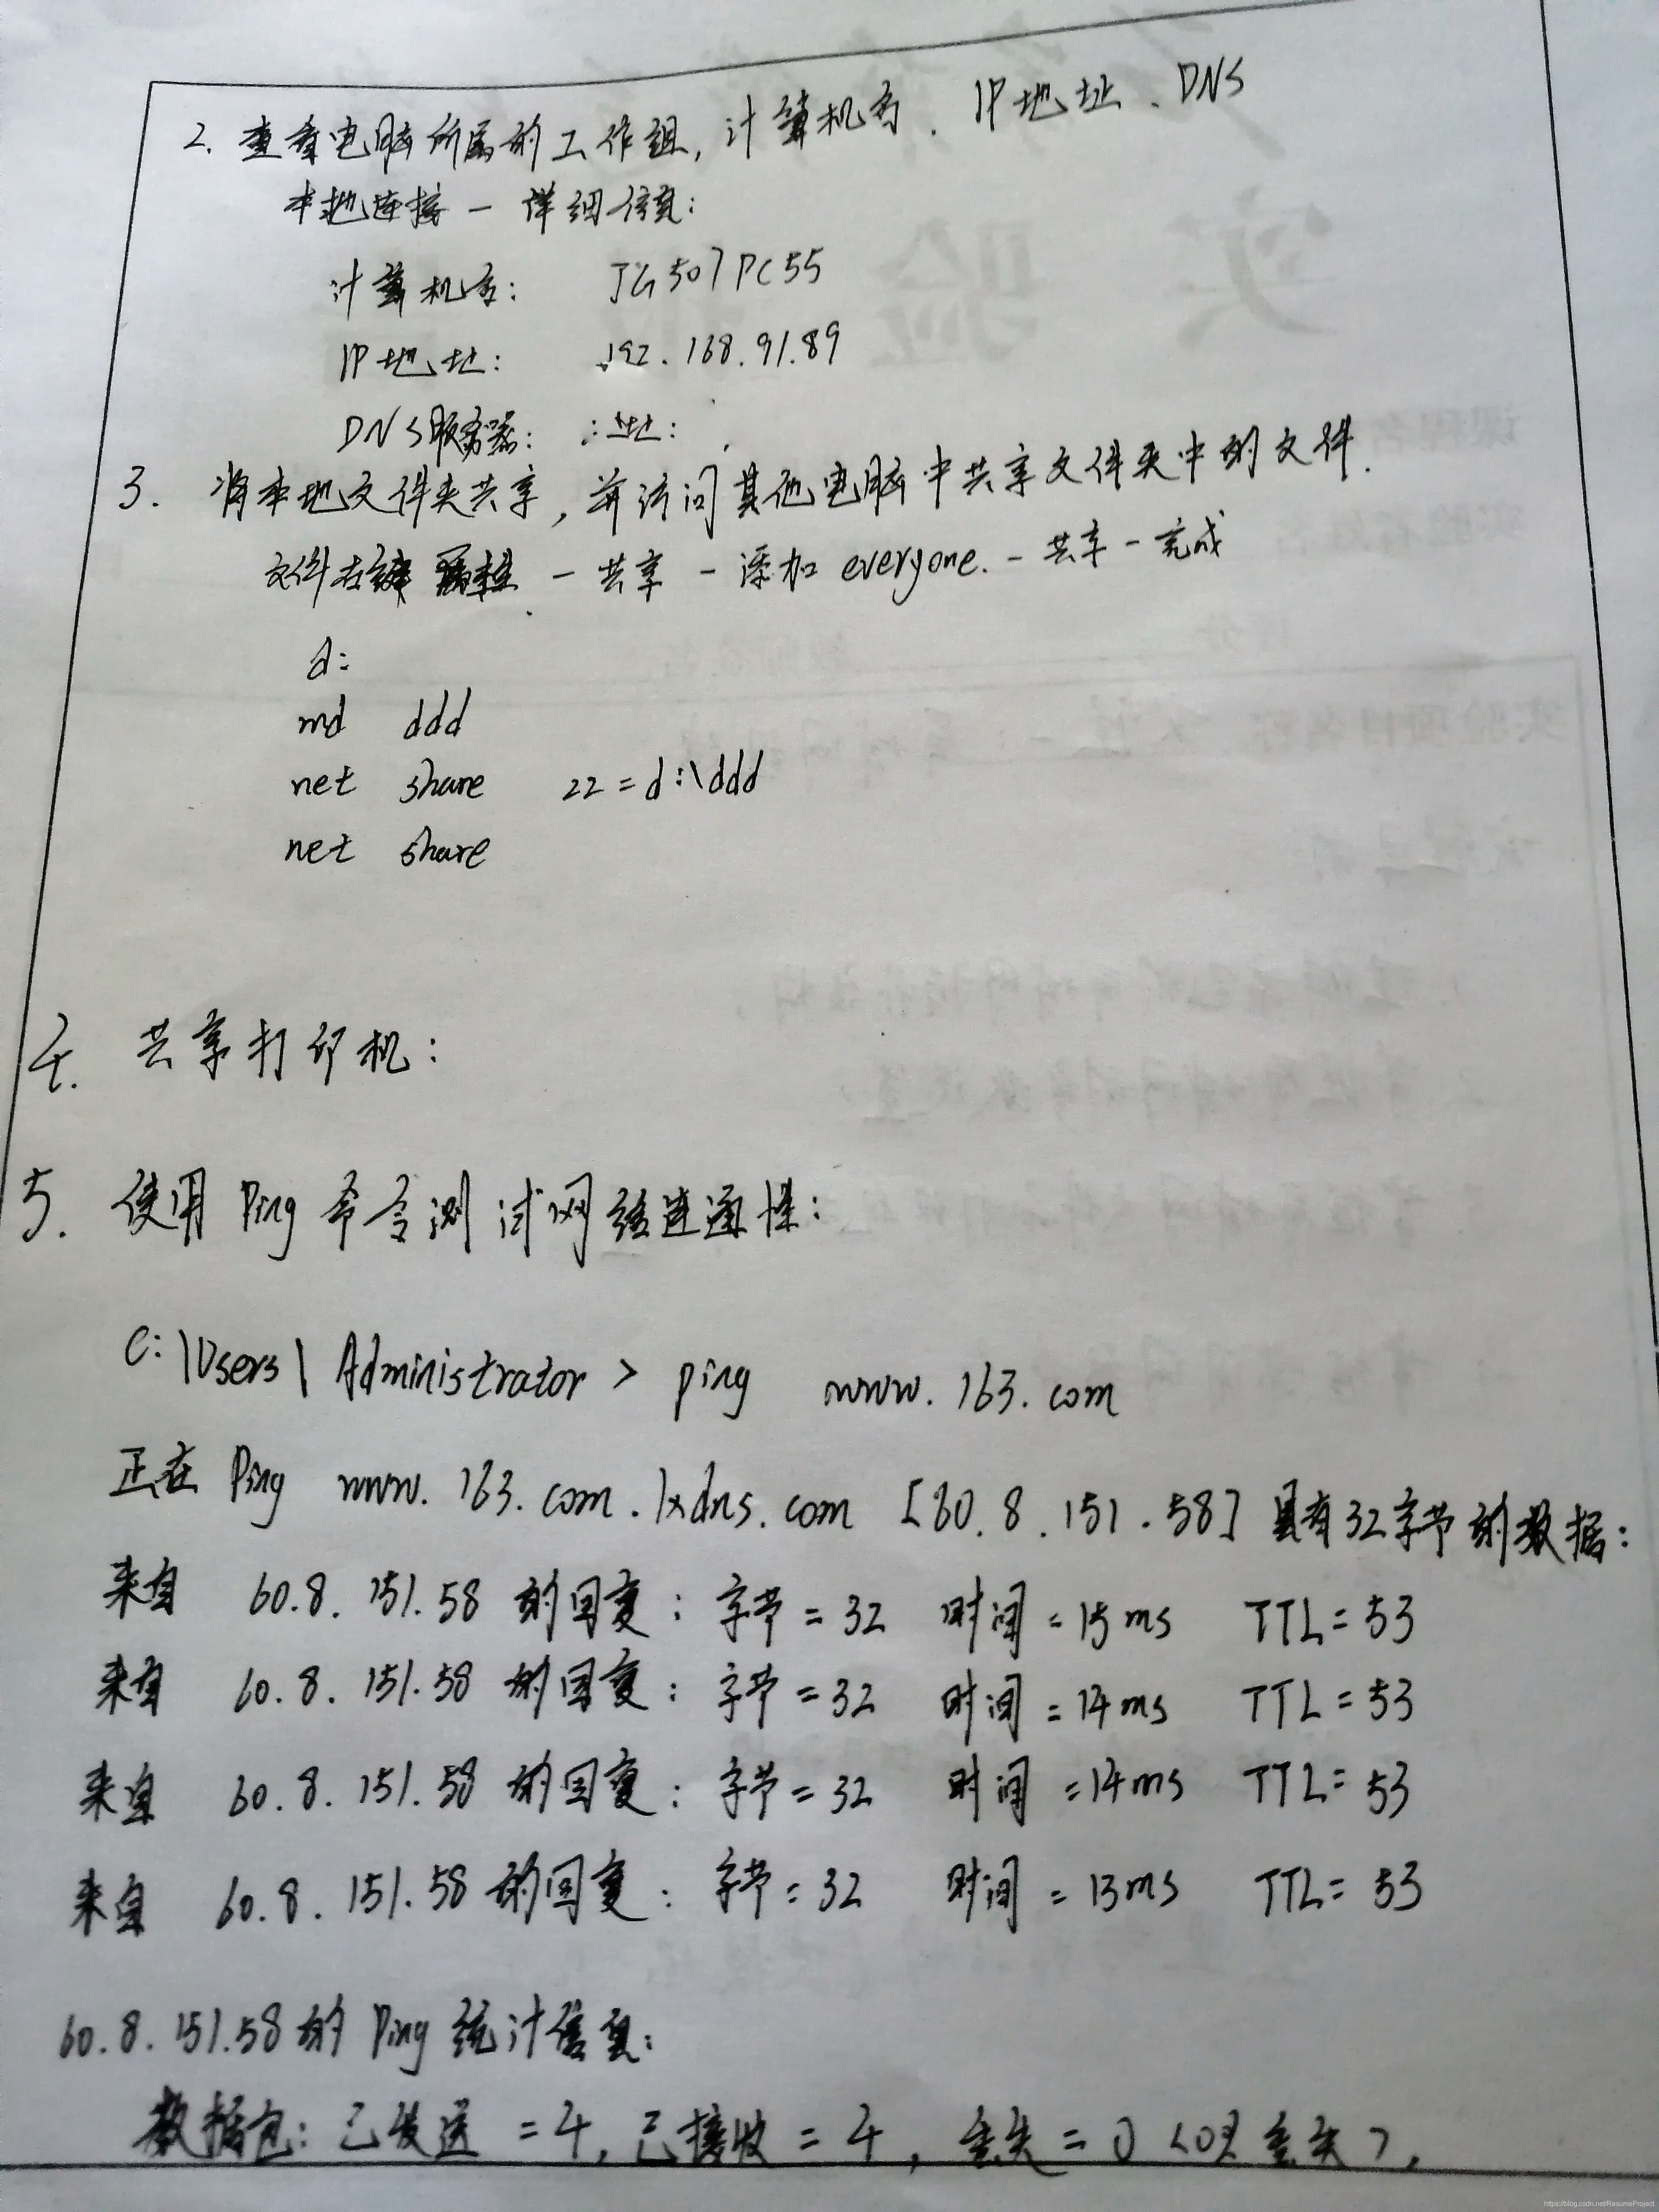 2. 查看电脑所属的工作组, 计算机名、IP地址、DNS
本地连接 — 详细信息:
计算机名: JG507PC55
IP地址: 192.168.91.89
DNS服务器:
3. 将本地文件夹共享, 并访问其他电脑中共享文件夹中的文件.
文件右键 — 共享 — 添加 everyone. — 共享 — 完成
d:
md ddd
net share 22=d:\ddd
net share
4. 共享打印机:
5. 使用Ping命令测试网络连通性:
C:\Users\Administrator> ping www.163.com
正在 Ping www.163.com.lxdns.com [60.8.151.58] 具有32字节的数据:
来自 60.8.151.58 的回复: 字节=32 时间=15ms TTL=53
来自 60.8.151.58 的回复: 字节=32 时间=14ms TTL=53
来自 60.8.151.58 的回复: 字节=32 时间=14ms TTL=53
来自 60.8.151.58 的回复: 字节=32 时间=13ms TTL=53
60.8.151.58 的 Ping 统计信息:
数据包: 已发送=4, 已接收=4, 丢失=0 <0% 丢失>,
https://blog.csdn.net/ResumeProject